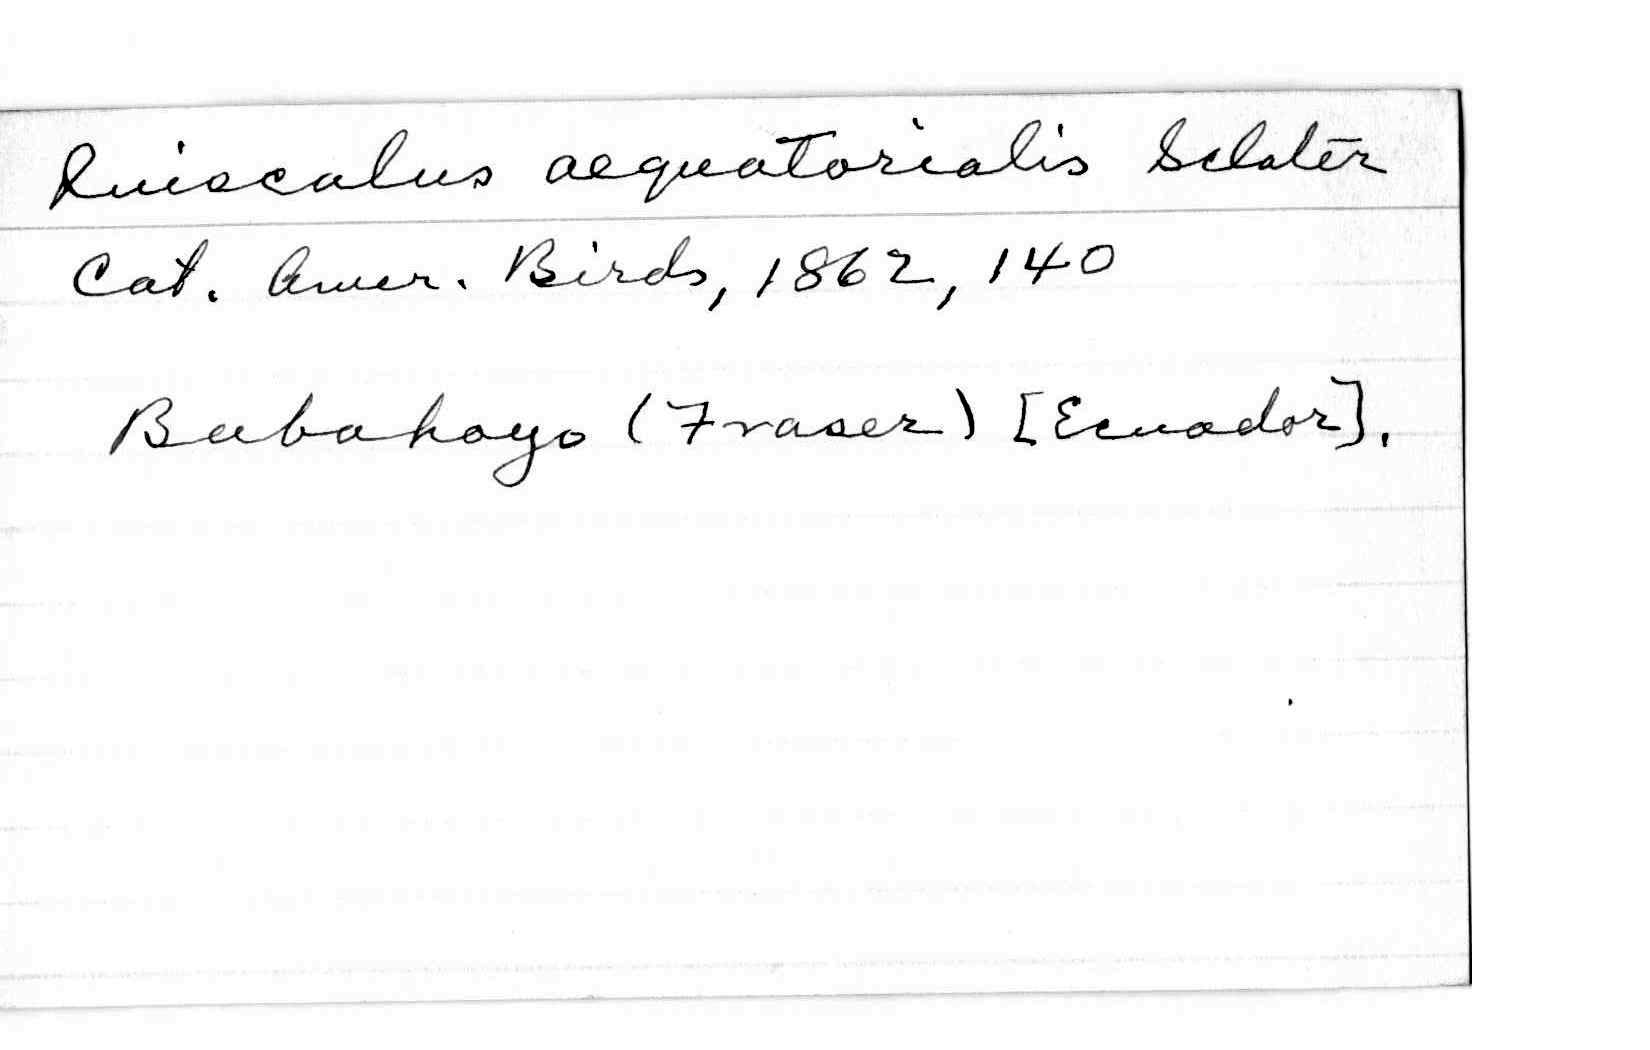 Quiscalus aequatorialis Sclater
Cat. Amer. Birds, 1862, 140
Babahoyo (Fraser) [Ecuador].